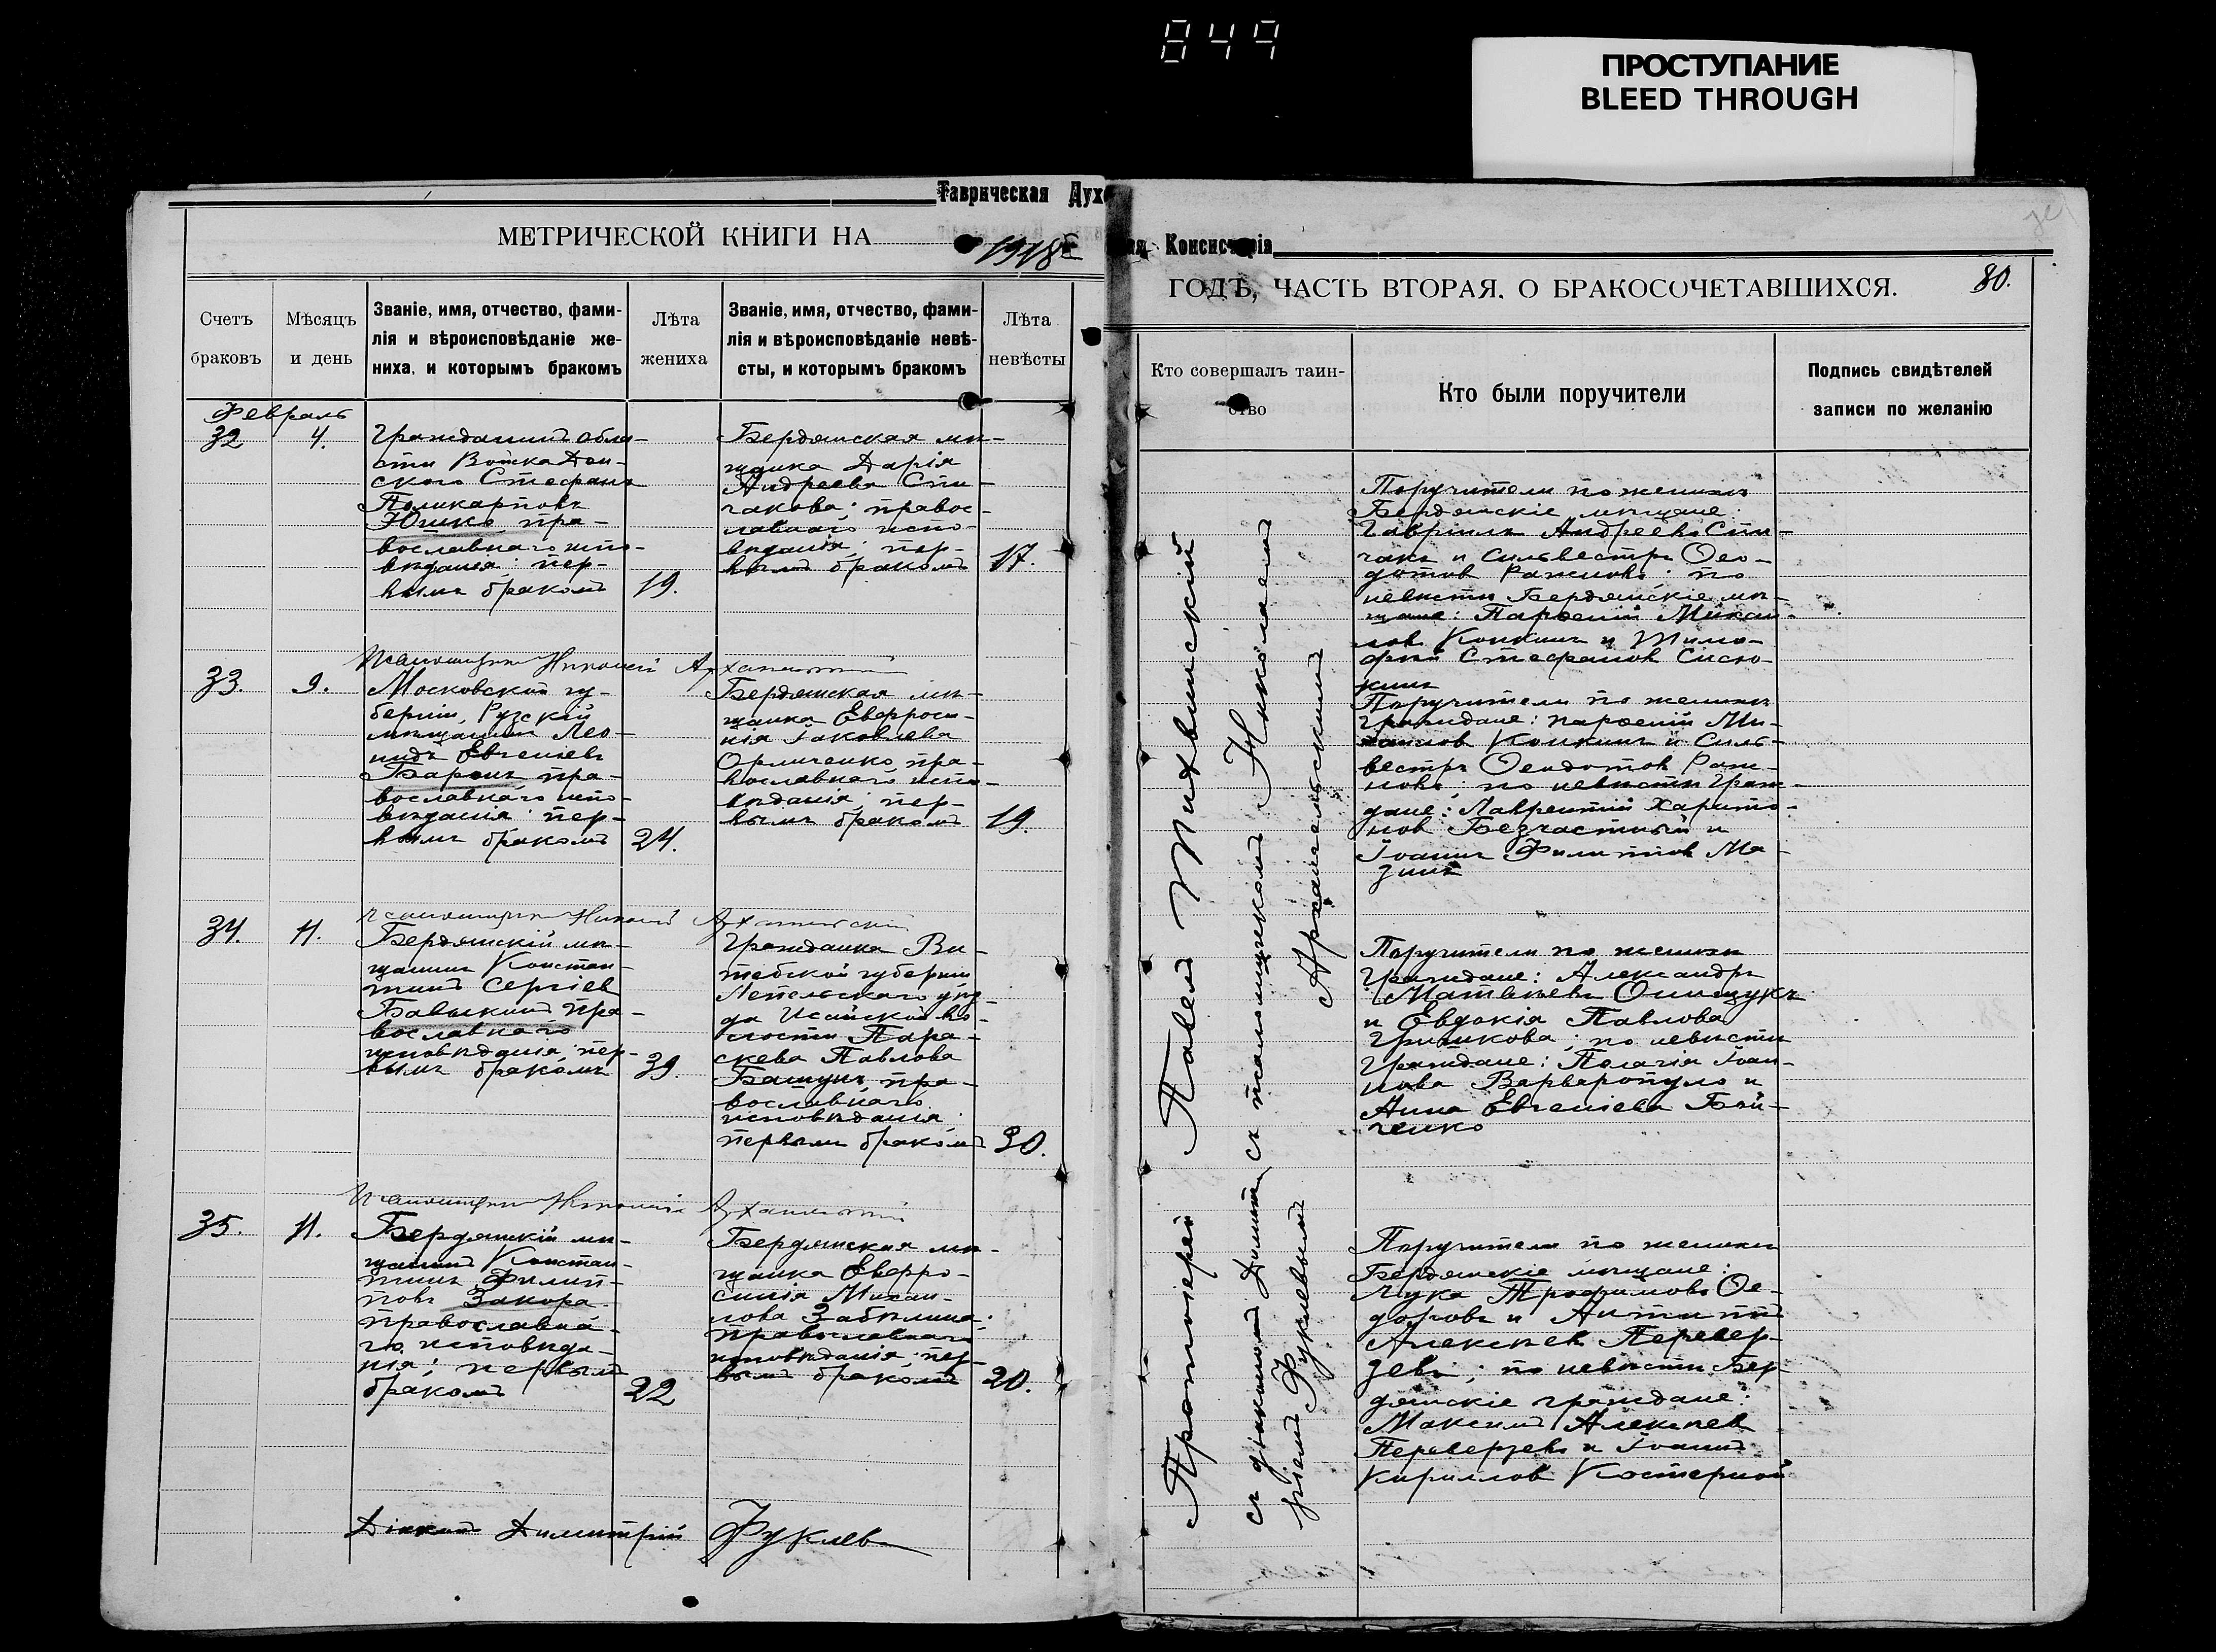 849
ПРОСТУПАНИЕ
BLEED THROUGH
Таврическая Духо
ная Консисторія
МЕТРИЧЕСКОЙ КНИГИ НА 1918
ГОДѢ, ЧАСТЬ ВТОРАЯ, О БРАКОСОЧЕТАВШИХСЯ.
80.
Счетъ
браковъ
Мѣсяцъ
и день
Званіе, имя, отчество, фами-
лія и вѣроисповѣданіе же-
ниха, и которымъ бракомъ
Лѣта
жениха
Званіе, имя, отчество, фами-
лія и вѣроисповѣданіе невѣ-
сты, и которымъ бракомъ
Лѣта
невѣсты
Кто совершалъ таин-
ство
Кто были поручители
Подпись свидѣтелей
записи по желанію
Февраль
32
4.
Гражданинъ обла-
сти Войска Дон-
ского Стефанъ
Поликарповъ
Юшко пра-
вославнаго испо-
вѣданія; пер-
вымъ бракомъ
19.
Бердянская мѣ-
щанка Дарія
Андреева Спи-
чакова; правос-
лавнаго испо-
вѣданія; пер-
вымъ бракомъ
17.
Поручители по женихѣ
Бердянскіе мѣщане:
Гавріилъ Андреевъ Спи-
чакъ и Сильвестръ Ѳео-
дотов ; по
невѣстѣ Бердянскіе мѣ-
щане: Парѳеній Михаи-
лов Конкинъ и Тимо-
фей Стефанов Сисю-
кинъ
Псаломщикъ Николай Архангельскій
33.
9.
Московской гу-
берніи, Рузскій
мѣщанинъ Лео-
нидъ Евгеніевъ
пра-
вославнаго испо-
вѣданія; пер-
вымъ бракомъ
24.
Бердянская мѣ-
щанка Евфроси-
нія Іаковлева
Орличенко, пра-
вославнаго испо-
вѣданія; пер-
вымъ бракомъ
19.
Поручители по женихѣ
Граждане: Парѳеній Ми-
хаилов Конкинъ и Силь-
вестръ Ѳеодотов
; по невѣстѣ Граж-
дане: Лаврентій Харито-
нов Безчастный и
Іоаннъ Филиппов Ма-
зинъ
Псаломщикъ Николай Архангельскій
34.
11.
Бердянскій мѣ-
щанинъ Констан-
тинъ Сергіев
Бавыкинъ пра-
вославнаго
исповѣданія; пер-
вымъ бракомъ
39.
Гражданка Ви-
тебской губерніи
Лепельскаго уѣз-
да во-
лости Пара-
скева Павлова
пра-
вославнаго
исповѣданія;
первымъ бракомъ
30.
Поручители по женихѣ
Граждане: Александръ
Матвѣевъ Онищукъ
и Евдокія Павлова
Гришкова; по невѣстѣ
Граждане: Пелагія Іоан-
нова Варваропуло и
Анна Евгеніева Бой-
ченко
Псаломщикъ Николай Архангельскій
35.
11.
Бердянскій мѣ-
щанинъ Констан-
тинъ Филип-
повъ Закора.
православна-
го исповѣда-
нія; первымъ
бракомъ
22
Бердянская мѣ-
щанка Евфро-
синія Михаи-
лова Забѣлина;
православнаго
исповѣданія; пер-
вымъ бракомъ
20.
Поручители по женихѣ
Бердянскіе мѣщане:
Лука Трофимовъ Ѳе-
доровъ и Антипъ
Алексѣев Перевер-
зевъ; по невѣстѣ Бер-
дянскіе граждане:
Максимъ Алексѣев
Переверзевъ и Іоаннъ
Кириллов Костерной
Діаконъ Димитрій Фуклев
Протоіерей Павелъ Тихвинскій
съ діакономъ Димит-
ріемъ Фуклевымъ
съ псаломщикомъ Николаемъ
Архангельскимъ